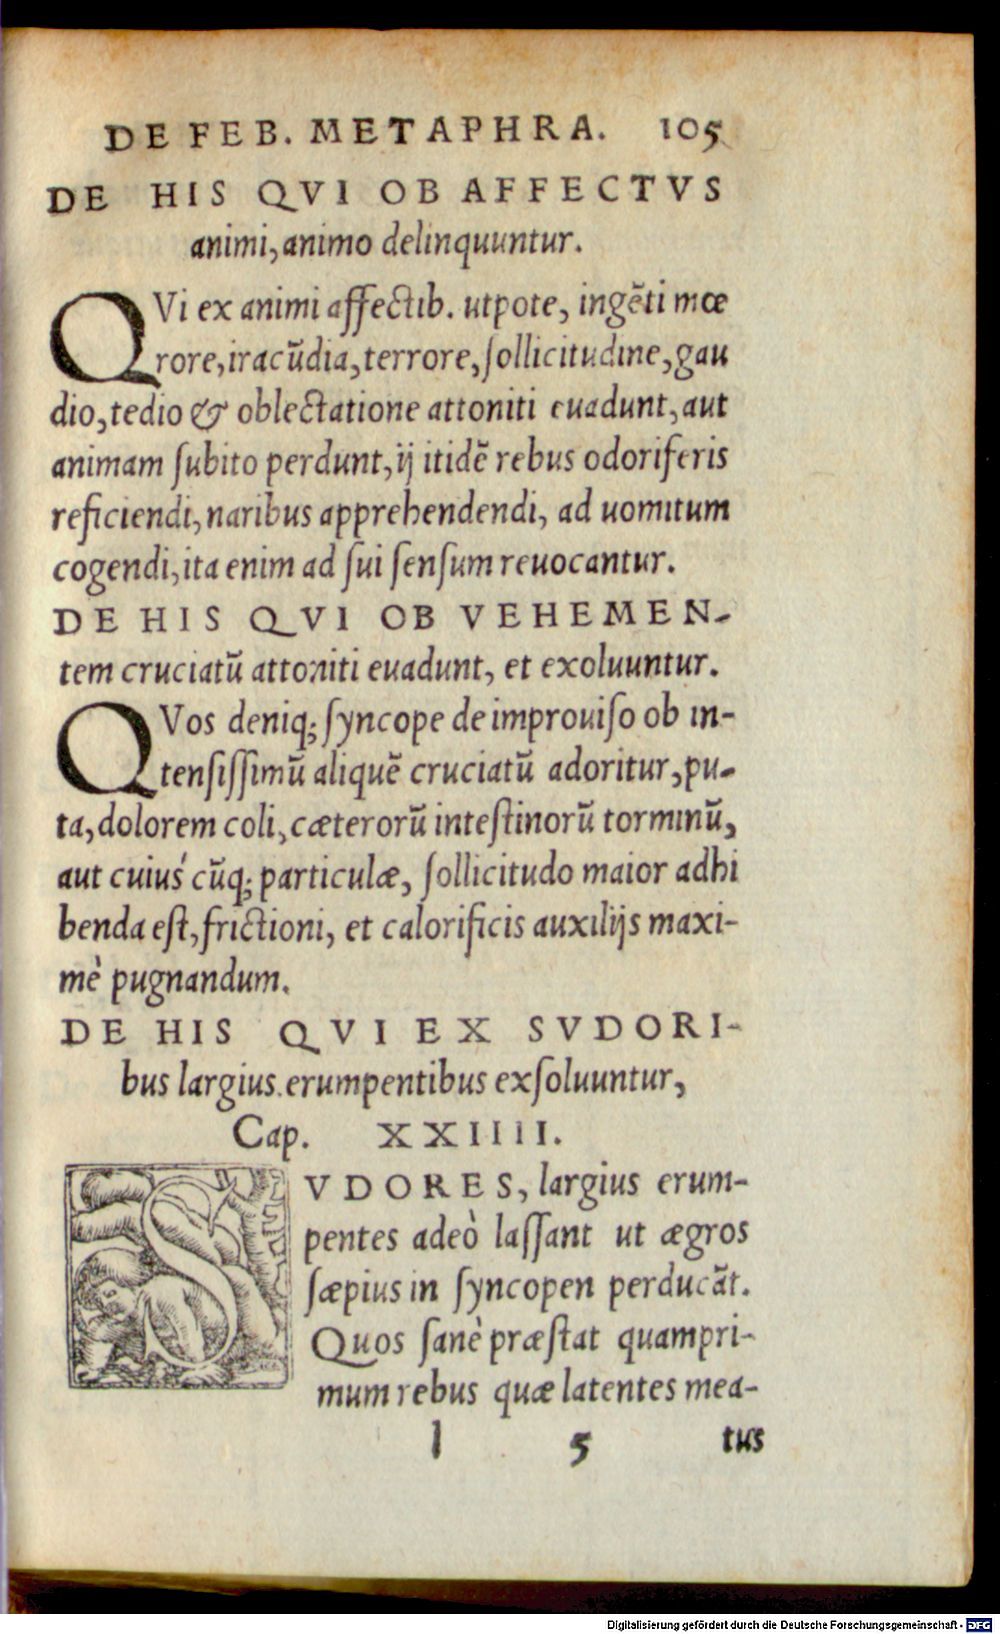 DE FEB. METAPHRA. 105
DE HIS QVI OB AFFECTVS
animi, animo delinquuntur.
QVi ex animi affectib. utpote, ingẽti mœ
rore, iracũdia, terrore, ſollicitudine, gau
dio, tedio & oblectatione attoniti euadunt, aut
animam ſubito perdunt, ij itidẽ rebus odoriferis
reficiendi, naribus apprehendendi, ad uomitum
cogendi, ita enim ad ſui ſenſum reuocantur.
DE HIS QVI OB VEHEMEN-
tem cruciatũ attoniti euadunt, et exoluuntur.
QVos deniq; ſyncope de improuiſo ob in-
tenſiſſimũ aliquẽ cruciatũ adoritur, pu-
ta, dolorem coli, cæterorũ inteſtinorũ torminũ,
aut cuiuś cũq; particulæ, ſollicitudo maior adhi
benda eſt, frictioni, et calorificis auxilijs maxi-
mè pugnandum.
DE HIS QVI EX SVDORI-
bus largius erumpentibus exſoluuntur,
Cap. XXIIII.
SVDORES, largius erum-
pentes adeò laſſant ut ægros
ſæpius in ſyncopen perducãt.
Quos ſanè præſtat quampri-
mum rebus quæ latentes mea-
l 5 tus
Digitalisierung gefördert durch die Deutsche Forschungsgemeinschaft - DFG